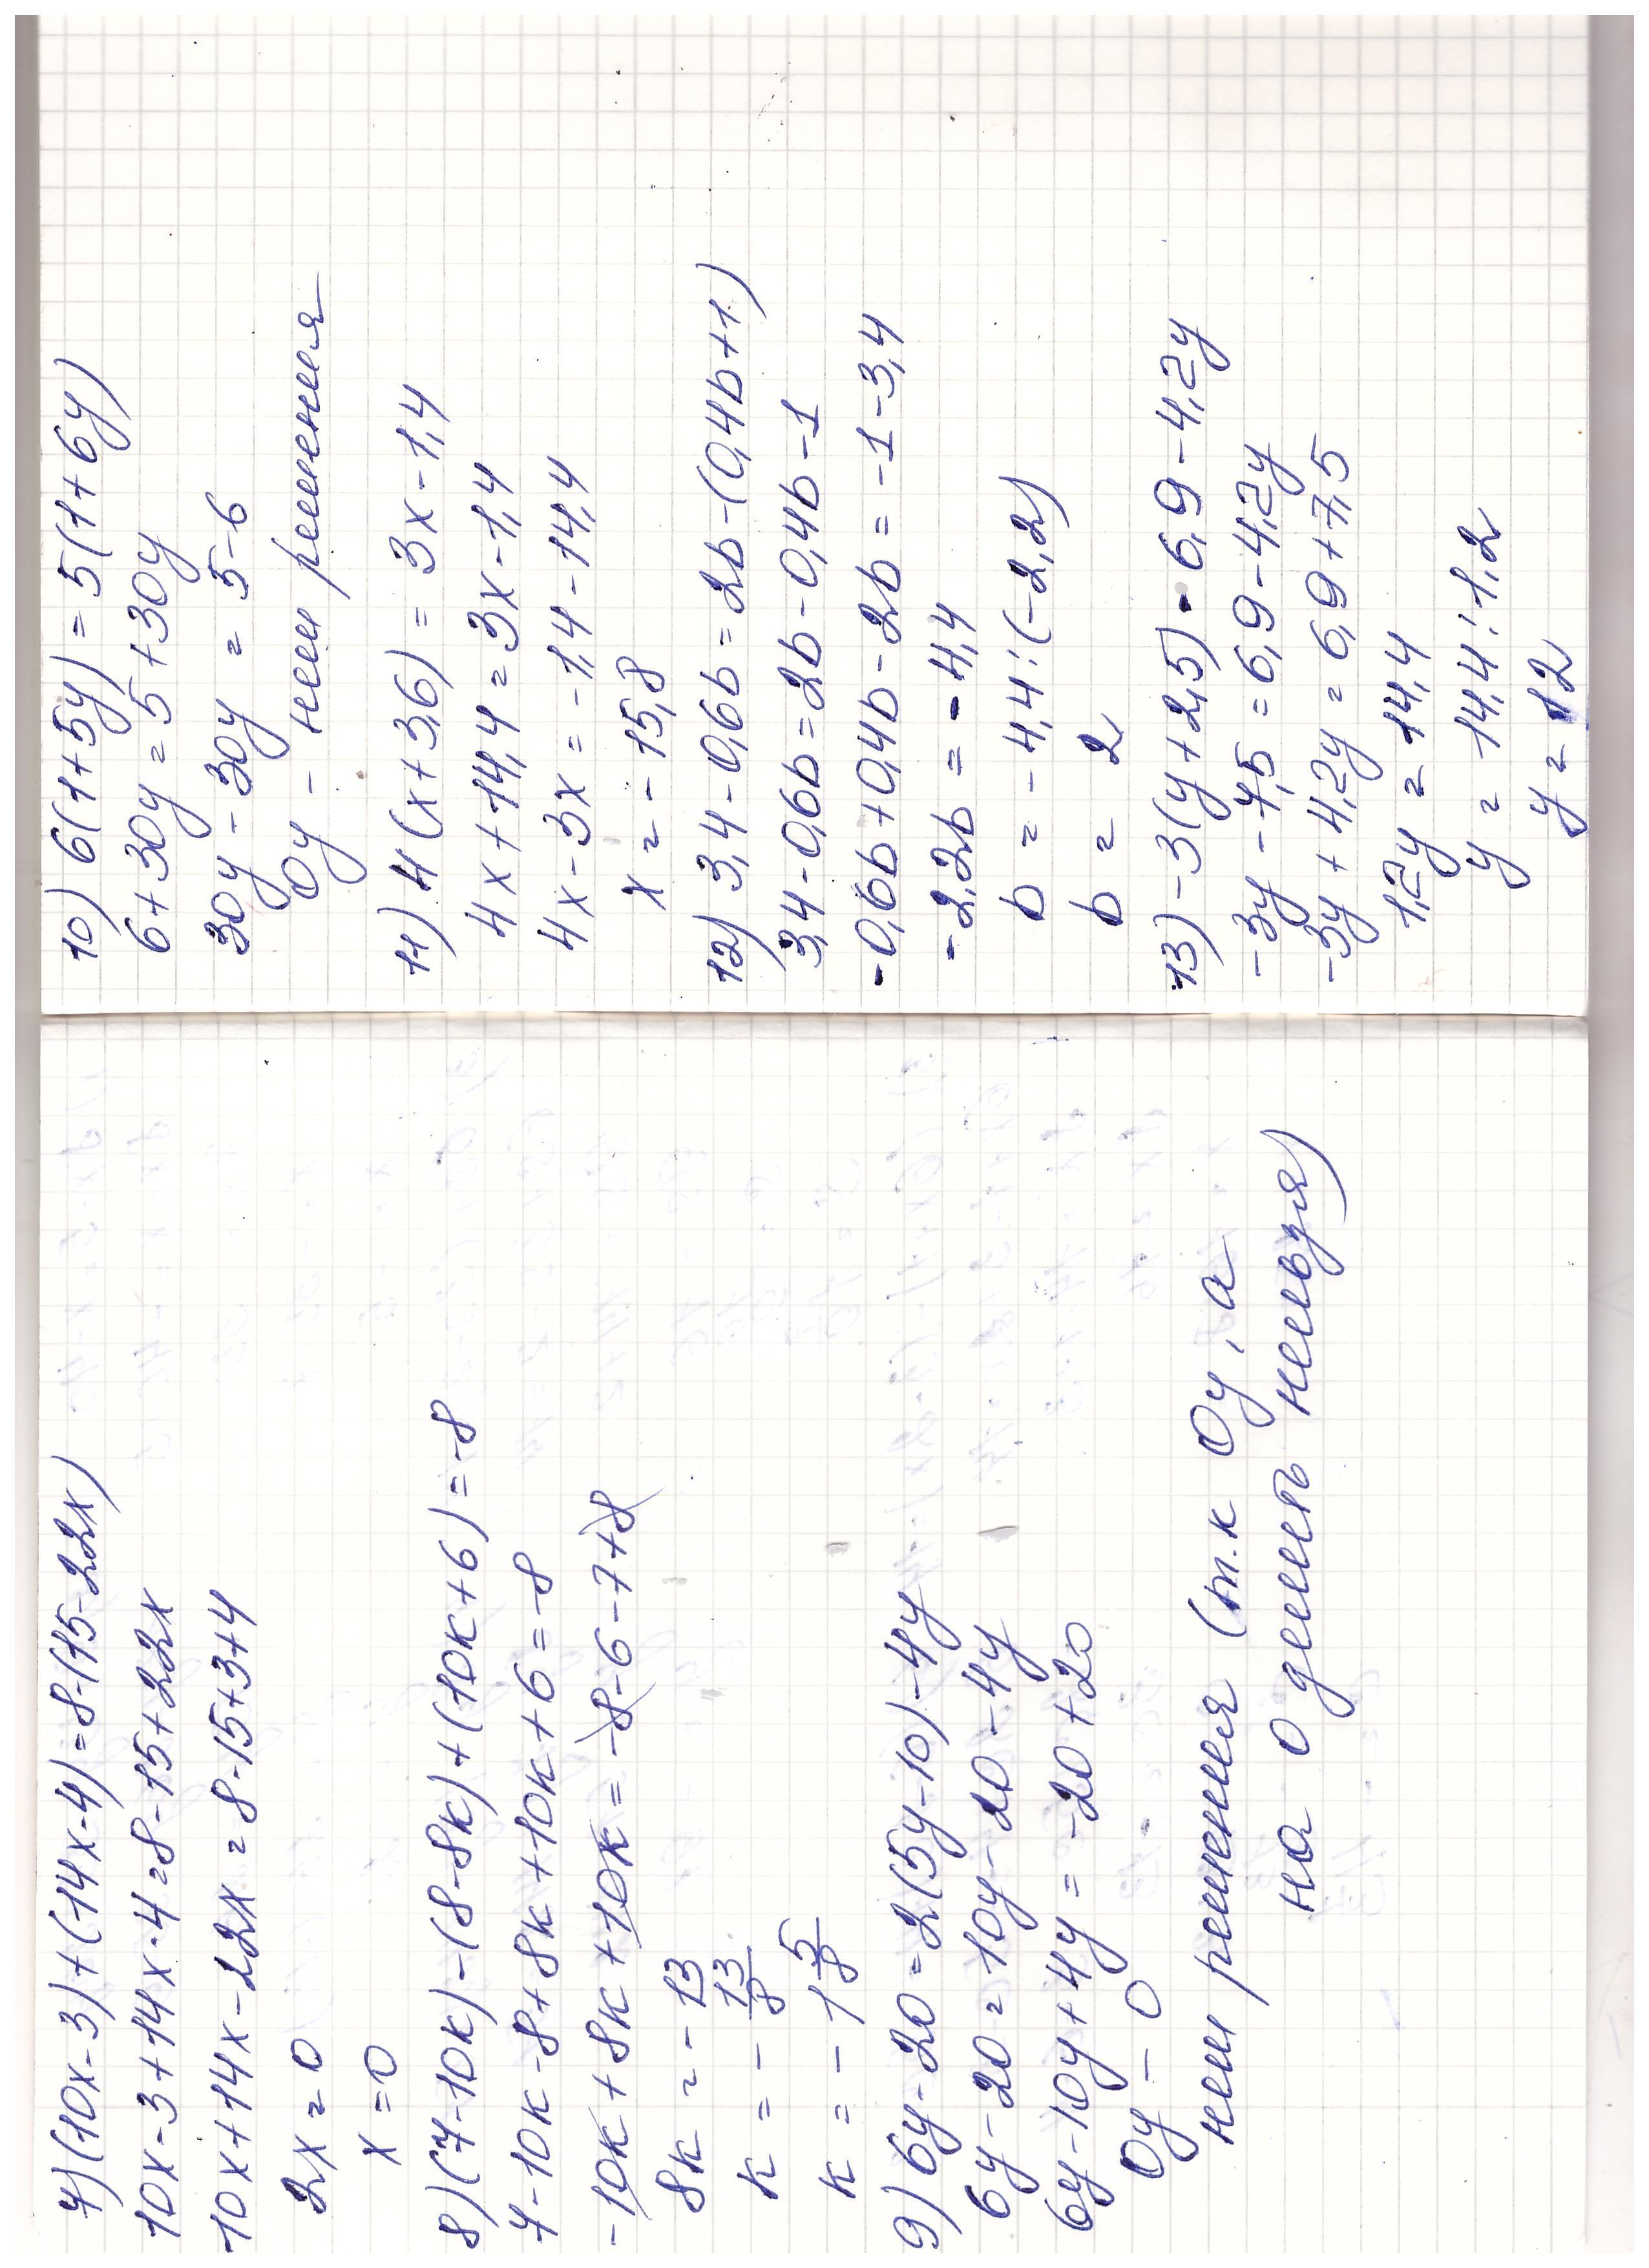 7) (10x-3)+(14x-4)=8-(15-22x)
10x-3+14x-4=8-15+22x
10x+14x-22x=8-15+3+4
2x=0
x=0
8) (7-10к)-(8-8к)+(10к+6)=-8
7-10к-8+8к+10к+6=-8
-10к+8к+10к=-8-6-7+8
8к=-13
к=-13/8
к=-1 5/8
9) 6y-20=2(5y-10)-4y
6y-20=10y-20-4y
6y-10y+4y=-20+20
0y-0
нет решения (т.к 0y, а
на 0 делить нельзя)
10) 6(1+5y)=5(1+6y)
6+30y=5+30y
30y-30y=5-6
0y - нет решения
11) 4(x+3,6)=3x-1,4
4x+14,4=3x-1,4
4x-3x=-1,4-14,4
x=-15,8
12) 3,4-0,6b=2b-(0,4b+1)
3,4-0,6b=2b-0,4b-1
-0,6b+0,4b-2b=-1-3,4
-2,2b=-4,4
b=-4,4:(-2,2)
b=2
13) -3(y+2,5)=6,9-4,2y
-3y-7,5=6,9-4,2y
-3y+4,2y=6,9+7,5
1,2y=14,4
y=14,4:1,2
y=12